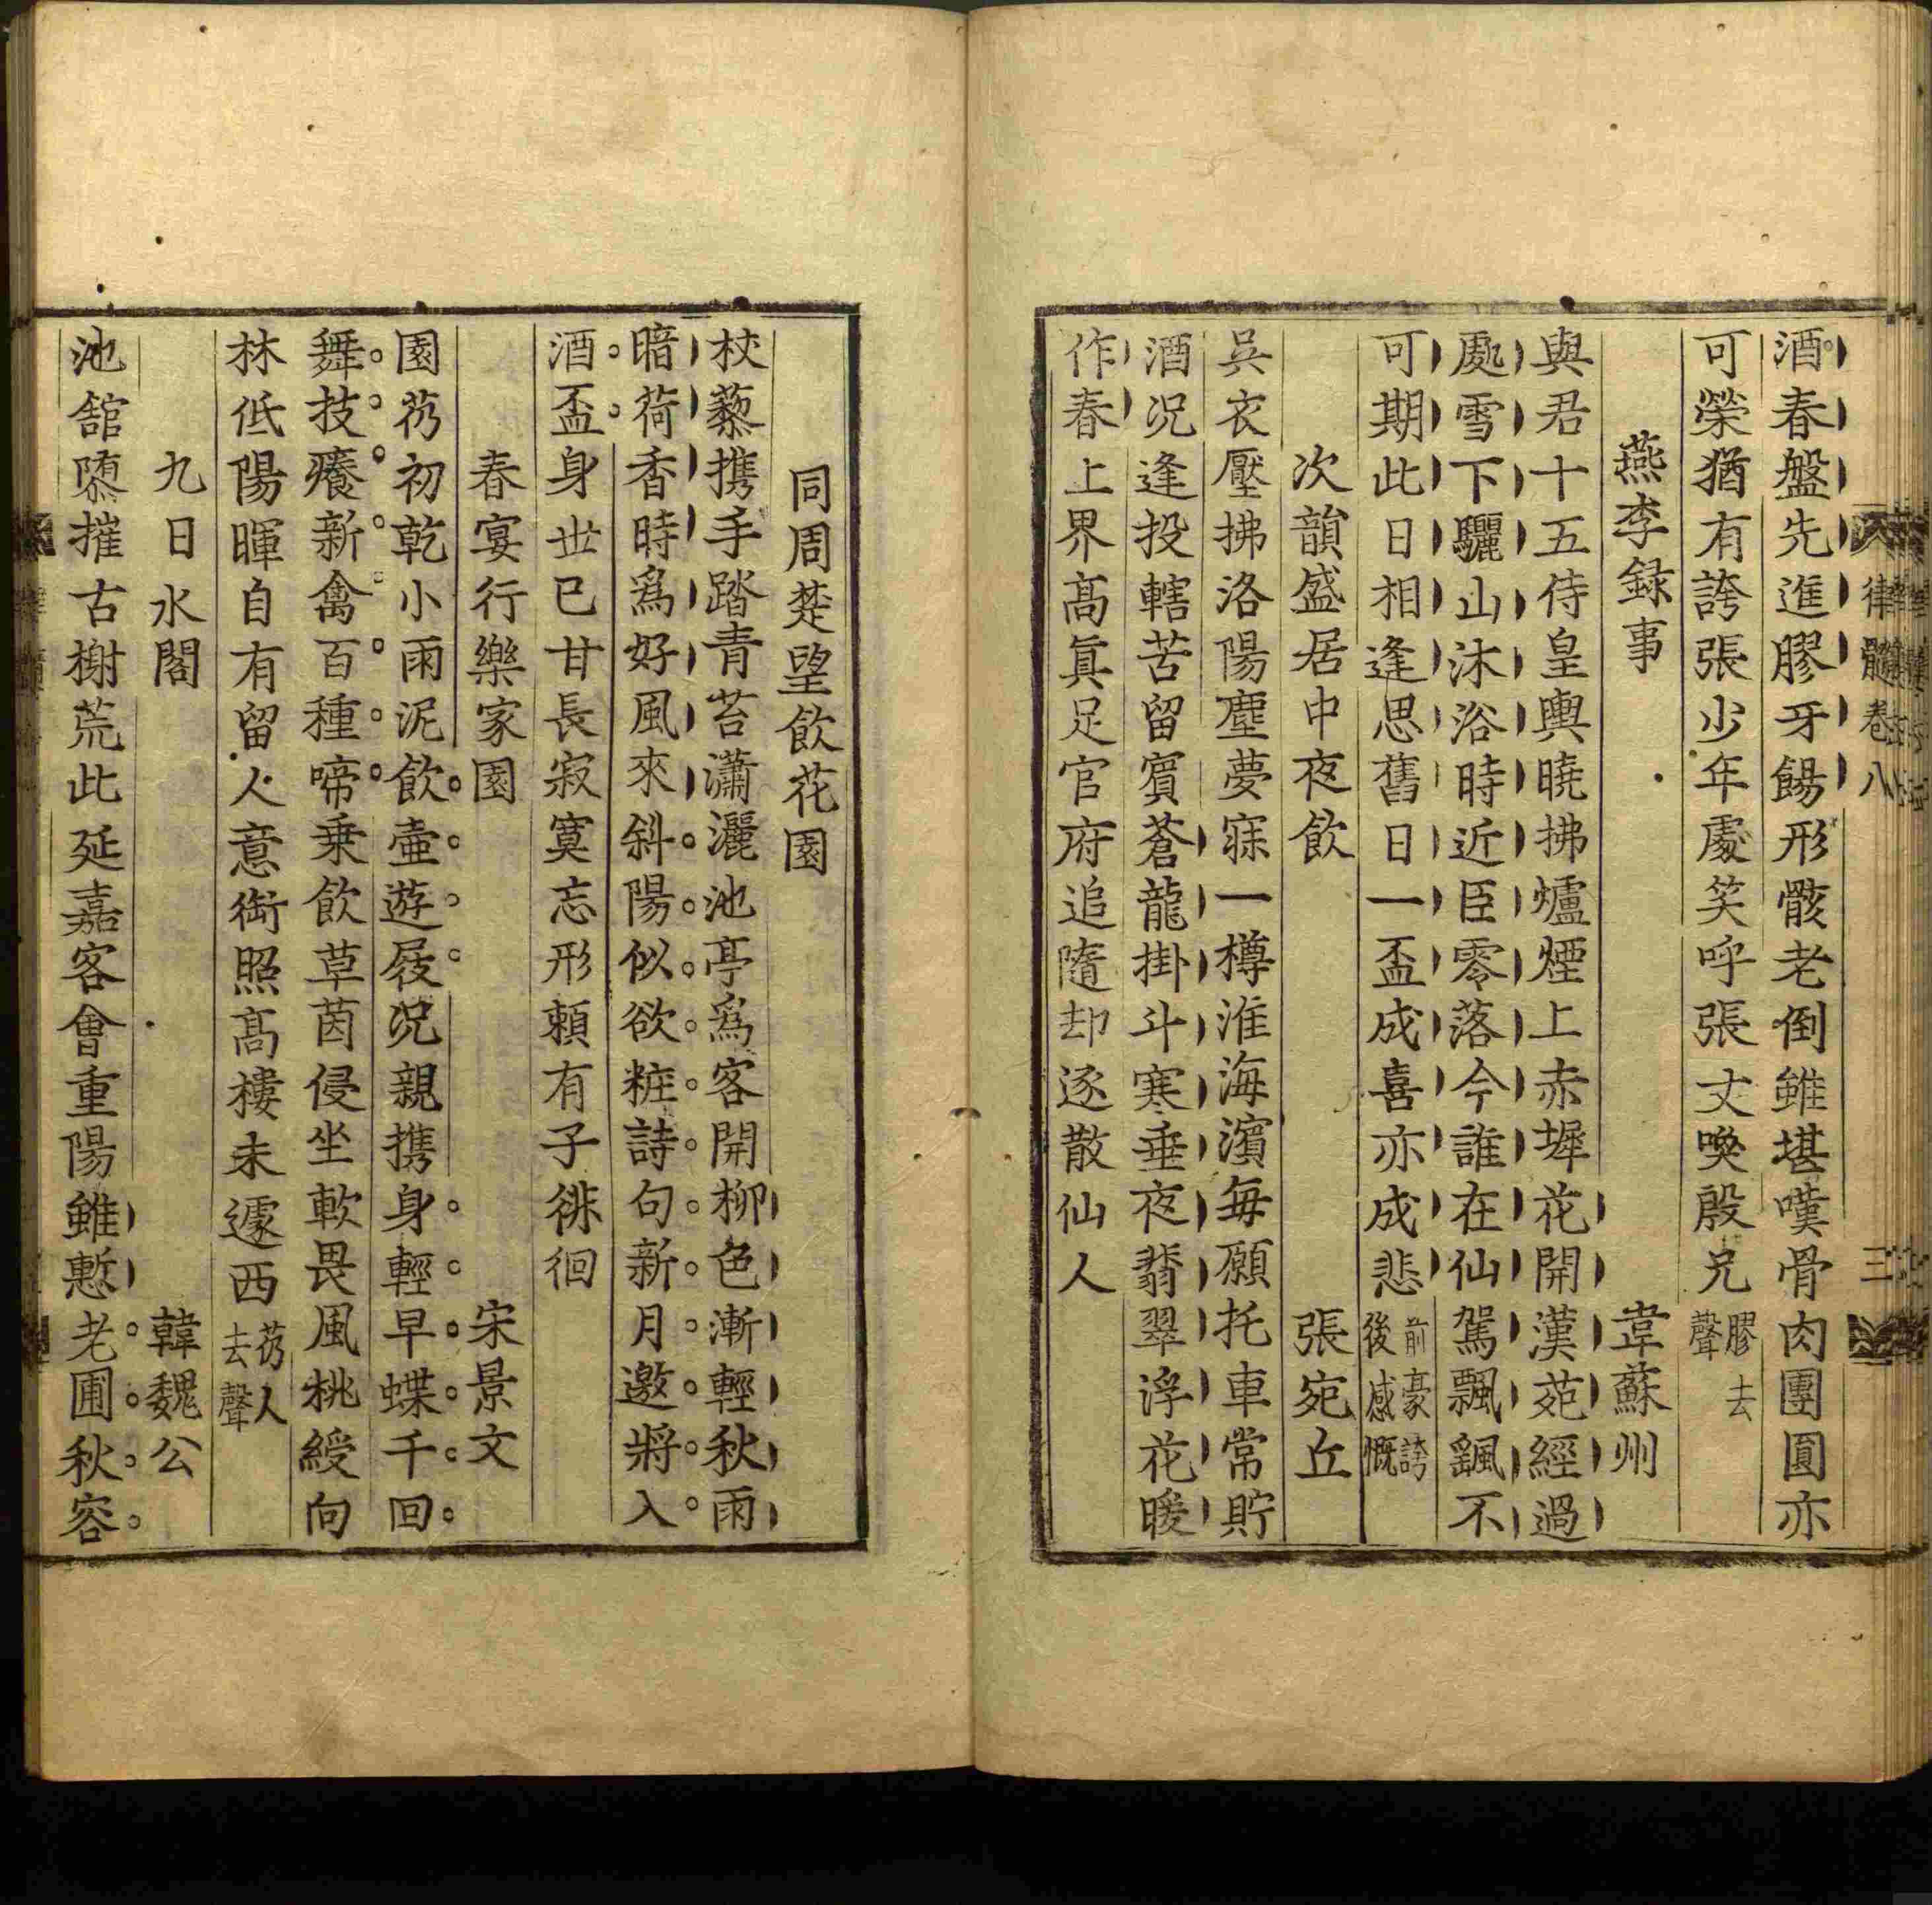 律髓卷八
三
酒春盤先進膠牙餳形骸老倒雖堪嘆骨肉團圓亦
可榮猶有誇張少年處笑呼張丈喚殷兄膠去聲
燕李録事 韋蘇州
與君十五侍皇輿曉拂爐煙上赤墀花開漢苑經過
處雪下驪山沐浴時近臣零落今誰在仙駕飄颻不
可期此日相逢思舊日一盃成喜亦成悲前豪誇後感慨
次韻盛居中夜飲 張宛丘
吳衣壓拂洛陽塵夢寐一樽淮海濱每願托車常貯
酒况逢投轄苦留賓蒼龍掛斗寒垂夜翡翠浮花暖
作春上界髙眞足官府追隨却逐散仙人
同周楚望飲花園
杖藜携手踏青苔瀟灑池亭爲客開柳色漸輕秋雨
暗荷香時爲好風來斜陽似欲粧詩句新月邀將入
酒盃身世已甘長寂寞忘形頼有子徘徊
春宴行樂家園 宋景文
園芿初乾小雨泥飲壷遊屐况親携身輕早蝶千回
舞技癢新禽百種啼乗飲草茵侵坐軟畏風桃綬向
林低陽暉自有留人意銜照髙樓未遽西芿人去聲
九日水閣 韓魏公
池舘隳摧古榭荒此延嘉客會重陽雖慙老圃秋容